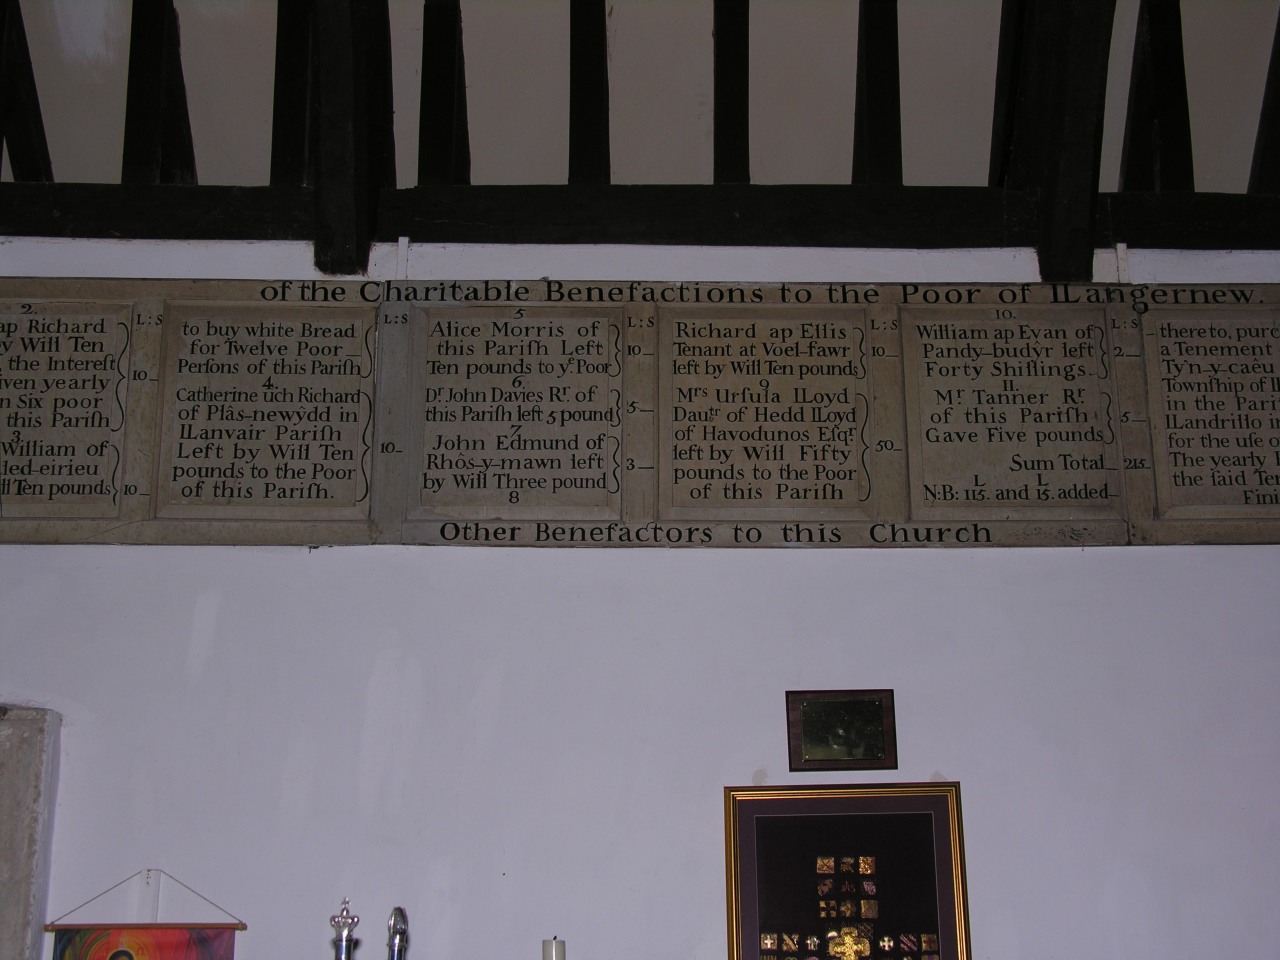 of the Charitable Benefactions to the Poor of lLangernew.
2.
ap Richard
by Will Ten
, the Interest
iven yearly
n Six poor
this Pariſh.
3
William of
led-eirieu
ll Ten pounds
L:S
10
10
to buy white Bread
for Twelve Poor
Perſons of this Pariſh
4.
Catherine ûch Richard
of Plâs-newŷdd in
lLanvair Pariſh
Left by Will Ten
pounds to the Poor
of this Pariſh.
L:S
10
5
Alice Morris of
this Pariſh Left
Ten pounds to yᵉ Poor
6.
Dʳ. John Davies Rʳ. of
this Pariſh left 5 pound
7
John Edmund of
Rhôs-y-mawn left
by Will Three pound
8
L:S
10
5
3
Richard ap Ellis
Tenant at Voel-fawr
left by Will Ten pounds
9
Mʳˢ Urſula lLoyd
Dauᵗʳ of Hedd lLoyd
of Havodunos Eſqʳ.
left by Will Fifty
pounds to the Poor
of this Pariſh
L:S
10
50
10.
William ap Evan of
Pandy-budyr left
Forty Shillings.
11.
Mʳ. Tanner Rʳ.
of this Pariſh
Gave Five pounds
Sum Total
L L
N:B: 115. and 15. added
L:S
2
5
215
there to, purc
a Tenement
Ty'n-y-caeu
Townſhip of
in the Pari
lLandrillo i
for the uſe o
The yearly
the ſaid Te
Fini
Other Benefactors to this Church